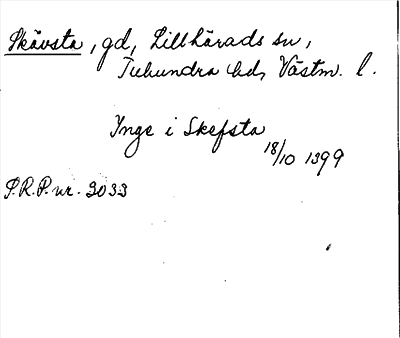 Skävsta, gd, Lillhärads sn,
Tuhundra hd, Västm. l.
Ynge i Skefsta
18/10 1399
S.R.P. nr. 3033